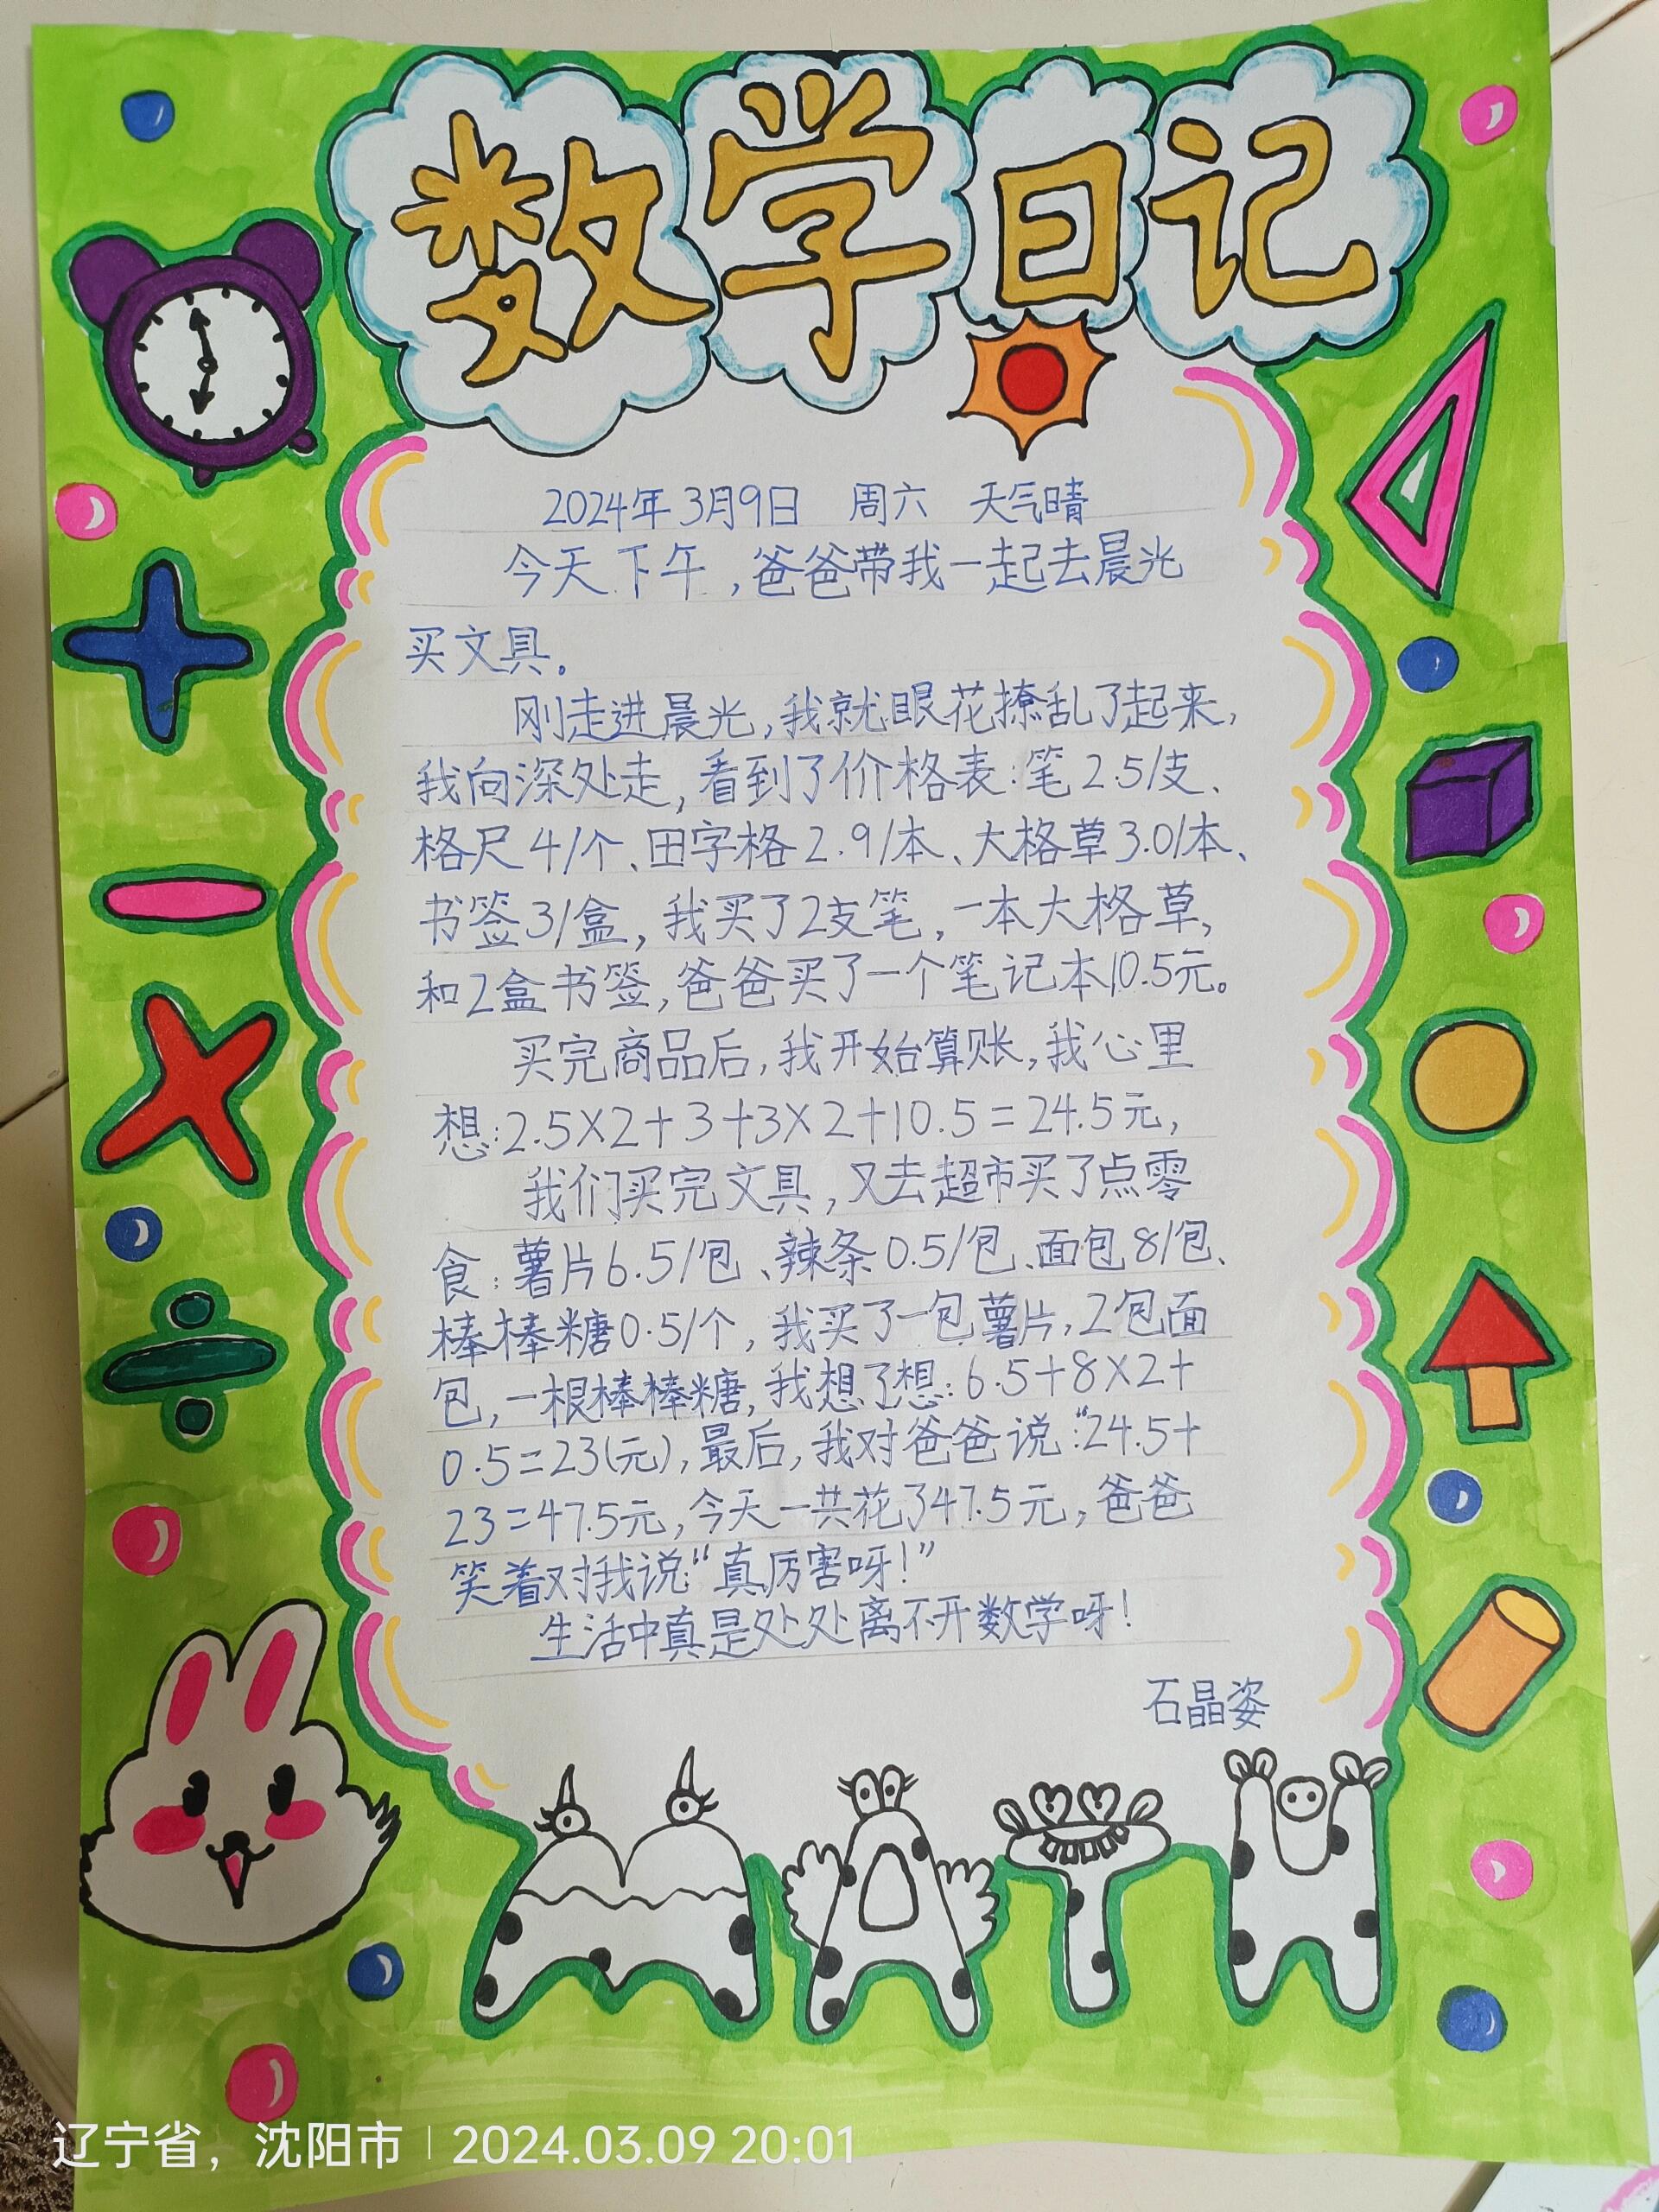 数学日记
2024年3月9日 周六 天气晴
今天下午,爸爸带我一起去晨光
买文具。
刚走进晨光,我就眼花撩乱了起来,
我向深处走,看到了价格表:笔2.5/支、
格尺4/个、田字格2.9/本、大格草3.0/本、
书签3/盒,我买了2支笔,一本大格草,
和2盒书签,爸爸买了一个笔记本10.5元。
买完商品后,我开始算账,我心里
想:2.5×2+3+3×2+10.5=24.5元,
我们买完文具,又去超市买了点零
食:薯片6.5/包、辣条0.5/包、面包8/包、
棒棒糖0.5/个,我买了一包薯片,2包面
包,一根棒棒糖,我想了想:6.5+8×2+
0.5=23(元),最后,我对爸爸说:“24.5+
23=47.5元,今天一共花了47.5元,爸爸
笑着对我说“真厉害呀!”
生活中真是处处离不开数学呀!
石晶姿
MATH
辽宁省,沈阳市 | 2024.03.09 20:01